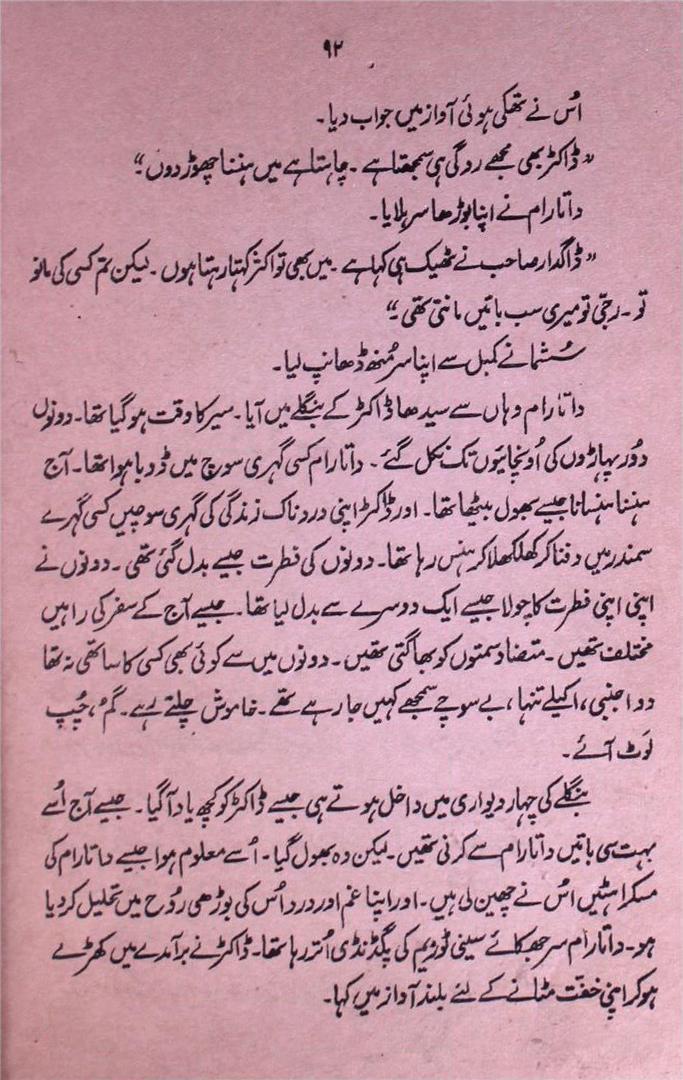 ۹۲
اُس نے تھکی ہوئی آواز میں جواب دیا۔
”ڈاکٹر بھی مجھے ردگی ہی سمجھتا ہے ۔ چاہتا ہے میں ہنسنا چھوڑ دوں“
داتا رام نے اپنا بوڑھا سر ہلایا۔
”ڈاگدار صاحب نے ٹھیک ہی کہا ہے ۔ میں بھی تو اکثر کہتا رہتا ہوں ۔ لیکن تم کسی کی مانو
تو ۔ رجّی تو میری سب باتیں مانتی تھی ۔“
سُشما نے کمبل سے اپنا سر مُنھ ڈھانپ لیا۔
داتا رام وہاں سے سیدھا ڈاکٹر کے بنگلے میں آیا ۔ سیر کا وقت ہو گیا تھا۔ دونوں
دُور پہاڑوں کی اُونچائیوں تک نکل گئے ۔ داتا رام کسی گہری سوچ میں ڈوبا ہوا تھا ۔ آج
ہنسنا ہنسانا جیسے بھول بیٹھا تھا ۔ اور ڈاکٹر اپنی دردناک زندگی کی گہری سوچیں کسی گہرے
سمندر میں دفنا کر کھلکھلا کر ہنس رہا تھا۔ دونوں کی فطرت جیسے بدل گئی تھی ۔ دونوں نے
اپنی اپنی فطرت کا چولا جیسے ایک دوسرے سے بدل لیا تھا۔ جیسے آج کے سفر کی راہیں
مختلف تھیں ۔ متضاد سمتوں کو بھاگتی تھیں ۔ دونوں میں سے کوئی بھی کسی کا ساتھی نہ تھا
دو اجنبی، اکیلے تنہا، بے سوچے سمجھے کہیں جا رہے تھے ۔ خاموش چلتے رہے ۔ گُم ، چُپ
لَوٹ آئے ۔
بنگلے کی چہار دیواری میں داخل ہوتے ہی جیسے ڈاکٹر کو کچھ یاد آگیا ۔ جیسے آج اُسے
بہت سی باتیں داتا رام سے کرنی تھیں ۔ لیکن وہ بھول گیا ۔ اُسے معلوم ہوا جیسے داتا رام کی
مسکراہٹیں اُس نے چھین لی ہیں ۔ اور اپنا غم اور درد اُس کی بوڑھی رُوح میں تحلیل کر دیا
ہو ۔ داتا رام سر جھکائے سینی ٹوریم کی پگڈنڈی اُتر رہا تھا۔ ڈاکٹر نے برآمدے میں کھڑے
ہو کر اپنی خفّت مٹانے کے لئے بلند آواز میں کہا۔